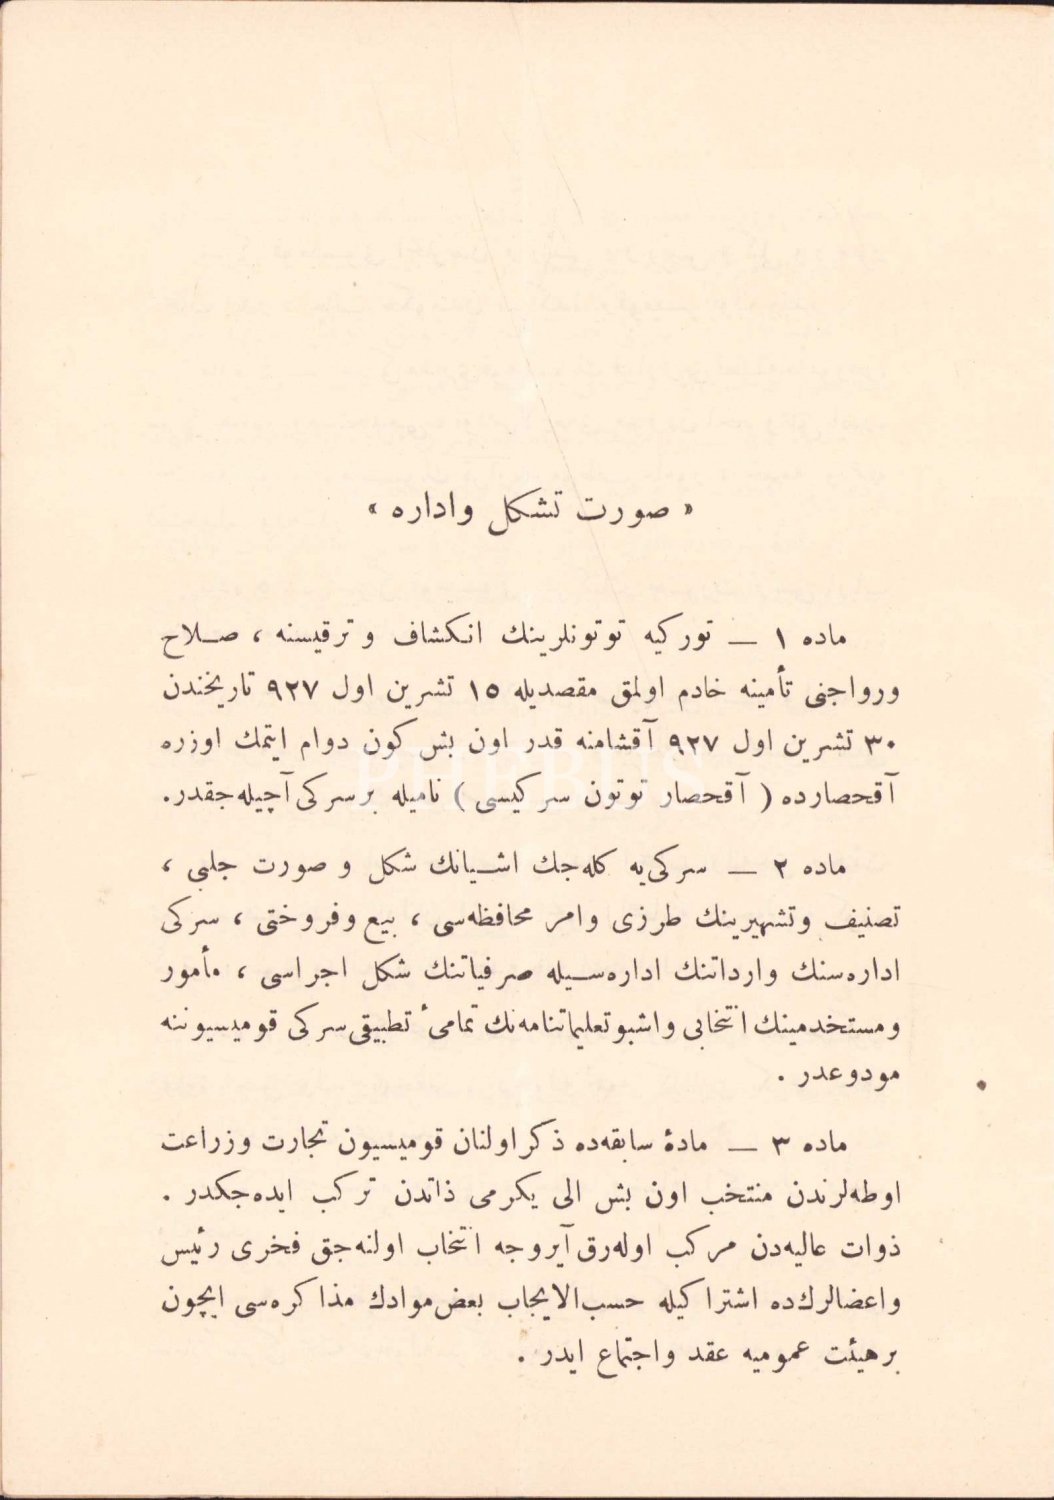 « صورت تشكل واداره »
ماده ١ — توركيه توتونلرينك انكشاف و ترقيسنه ، صلاح
ورواجنى تأمينه خادم اولمق مقصديله ١٥ تشرين اول ٩٢٧ تاريخندن
٣٠ تشرين اول ٩٢٧ آقشامنه قدر اون بش كون دوام ايتمك اوزره
آقحصارده ( آقحصار توتون سركيسى ) ناميله برسركى آچيله‌جقدر.
ماده ٢ — سركى‌يه كله‌جك اشيانك شكل و صورت جلبى ،
تصنيف وتشهيرينك طرزى وامر محافظه‌سى ، بيع وفروختى ، سركى
اداره‌سنك وارداتنك اداره‌سيله صرفياتنك شكل اجراسى ، مأمور
ومستخدمينك انتخابى واشبوتعليماتنامه‌نك تمامىٔ تطبيقى سركى قوميسيوننه
مودوعدر .
ماده ٣ — مادۀ سابقه‌ده ذكراولنان قوميسيون تجارت وزراعت
اوطه‌لرندن منتخب اون بش الى يكرمى ذاتدن تركب ايده‌جكدر .
ذوات عاليه‌دن مركب اوله‌رق آيروجه انتخاب اولنه‌جق فخرى رئيس
واعضالرك‌ده اشتراكيله حسب‌الايجاب بعض موادك مذاكره‌سى ايچون
برهيئت عموميه عقد واجتماع ايدر .
PHEBUS